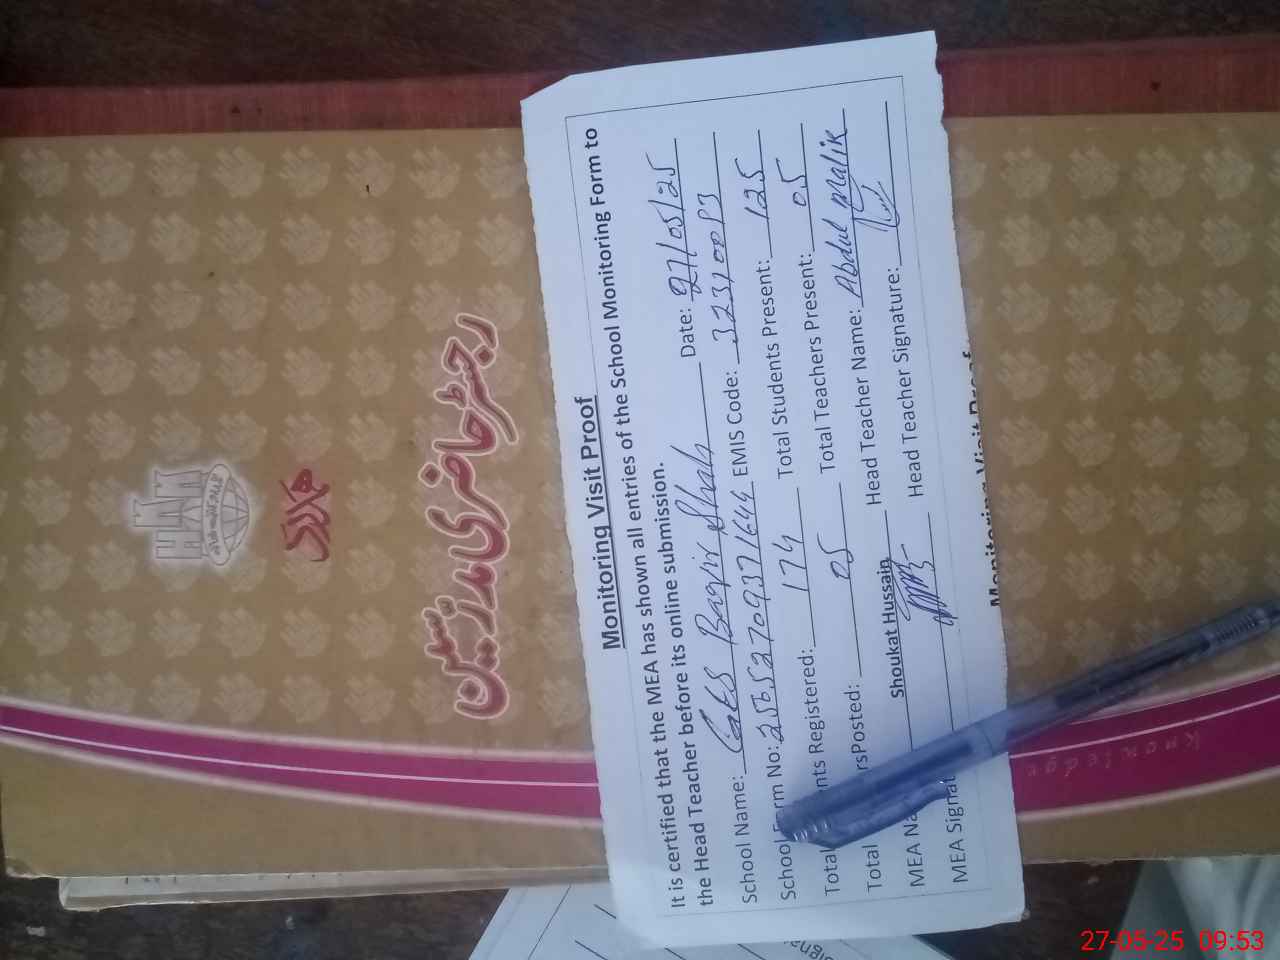 HAK
ہمدرد
رجسٹر حاضری مدرسین
Monitoring Visit Proof
It is certified that the MEA has shown all entries of the School Monitoring Form to
the Head Teacher before its online submission.
School Name: GES Baqir Shah Date: 27/05/25
School Form No: 25652709371644 EMIS Code: 32310093
Total nts Registered: 174 Total Students Present: 125
Total rsPosted: 05 Total Teachers Present: 05
MEA Na Shoukat Hussain Head Teacher Name: Abdul Malik
MEA Signat Head Teacher Signature:
Monitoring Visit Proof
Knowledge
27-05-25 09:53